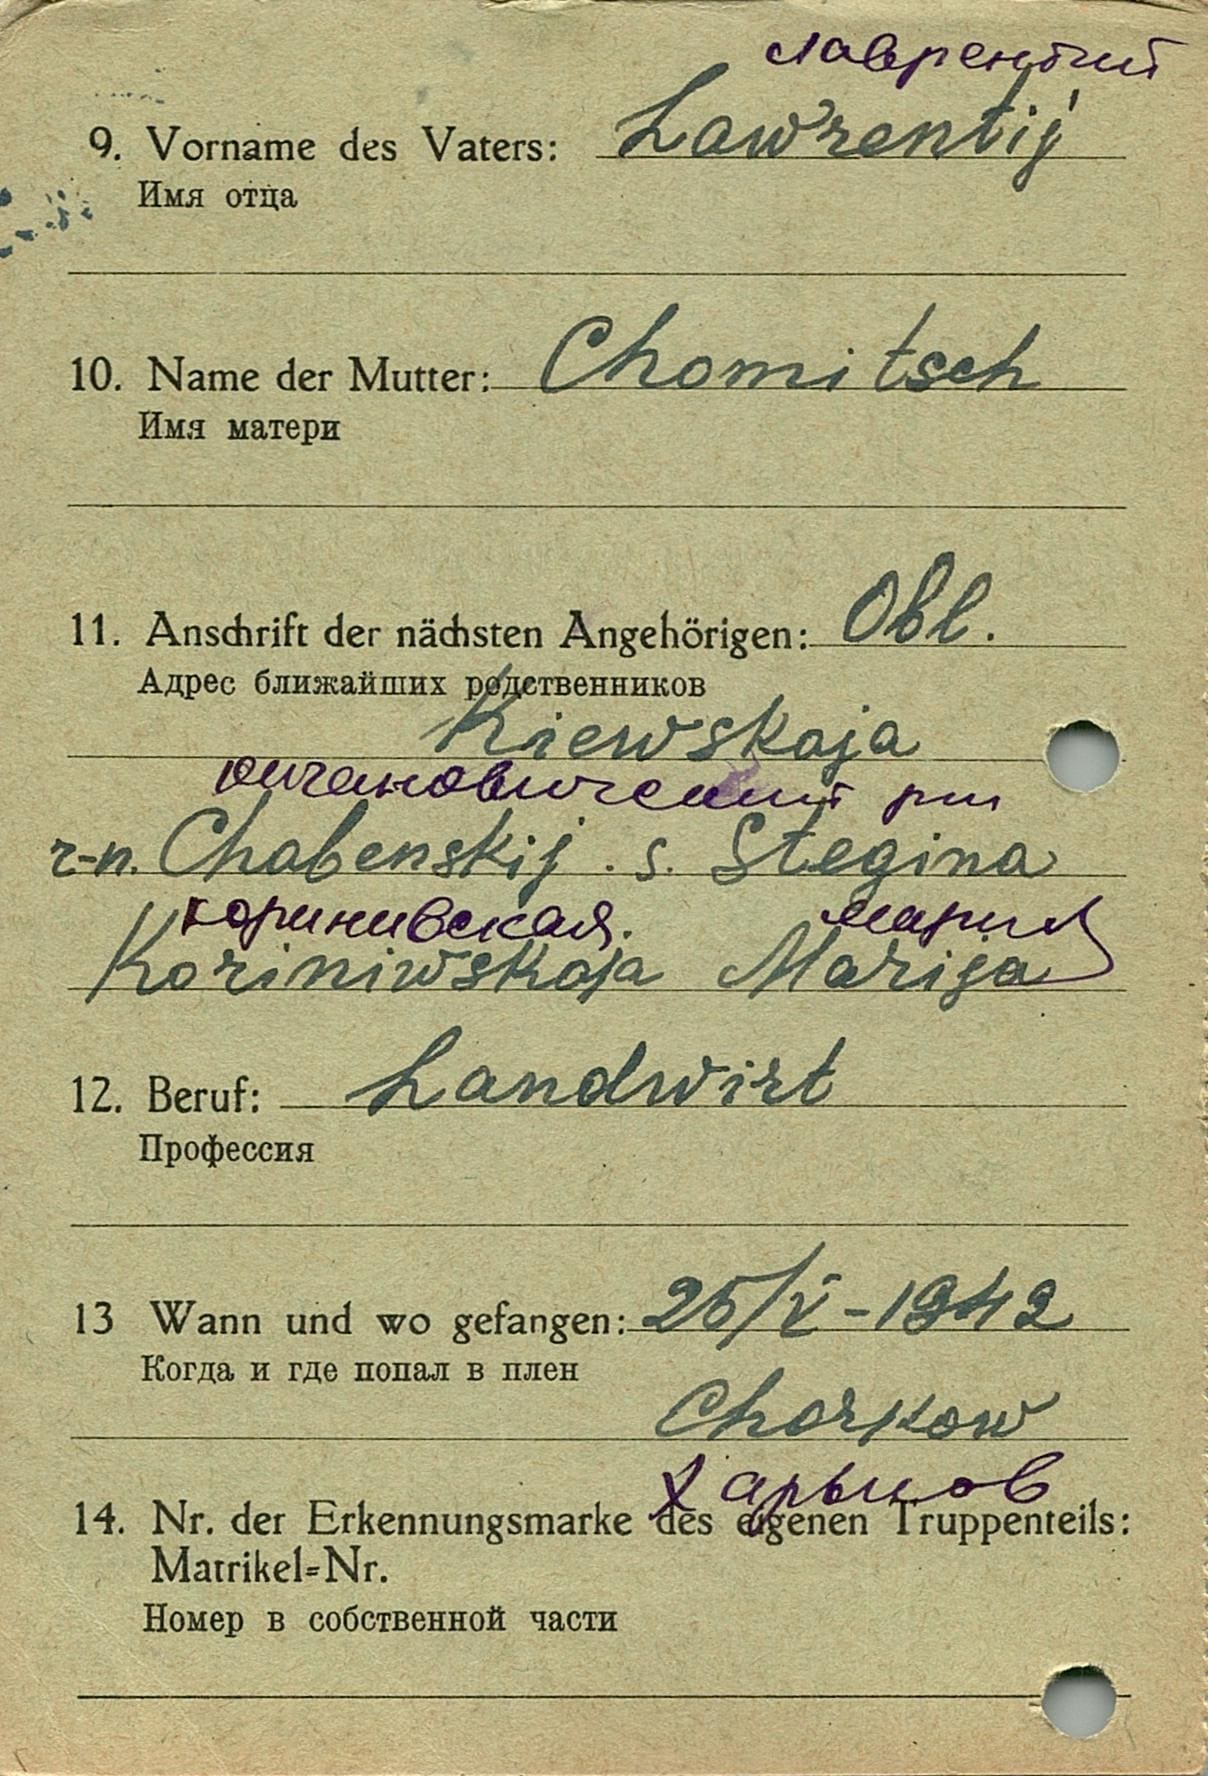 лаврентий
9. Vorname des Vaters: Lawrentij
Имя отца
10. Name der Mutter: Chomitsch
Имя матери
11. Anschrift der nächsten Angehörigen: Obl.
Адрес ближайших родственников
Kiewskaja
r-n. Chabenskij . s. Stegina
коринивская. мария
Koriniwskaja Marija
12. Beruf: Landwirt
Профессия
13 Wann und wo gefangen: 25/V-1942
Когда и где попал в плен
Charkow
Харьков
14. Nr. der Erkennungsmarke des eigenen Truppenteils:
Matrikel=Nr.
Номер в собственной части